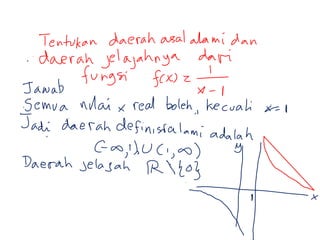 Tentukan daerah asal alami dan
daerah jelajahnya dari
fungsi f(x) = 1/(x-1)
Jawab
Semua nulai x real boleh, kecuali x=1
Jadi daerah definisi alami adalah
(-∞,1)∪(1,∞)
Daerah jelajah ℝ\{0}
y
1
x